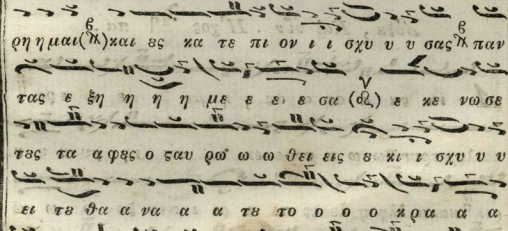 ρη η μαι και ες κα τε πι ον ι ι σχυ υ υ σας παν
τας ε ξη η η η με ε ε ε σα ε κε νω σε
τες τα α φες ο ςαυ ρω ω ω θει εις ε κι ι σχυ υ υ
ει τε θα α να α α τε το ο ο ο κρα α α